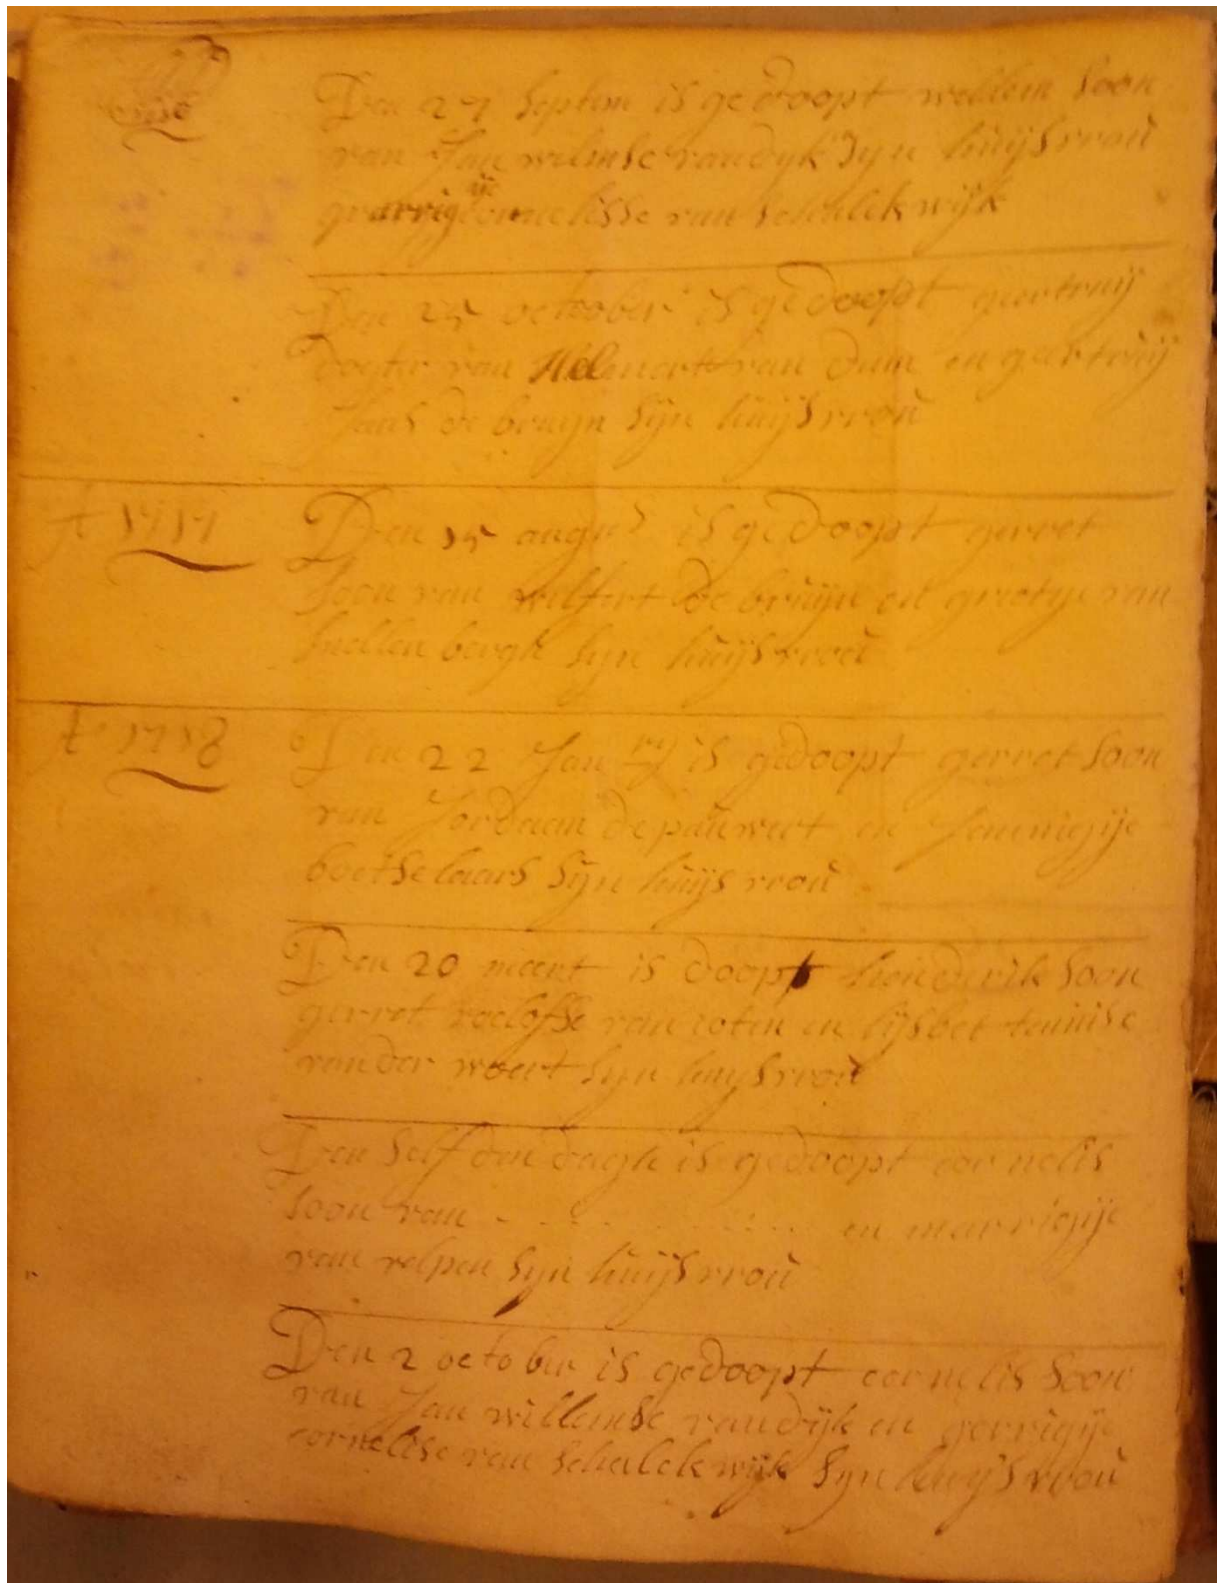 Den 27 Septem is gedoopt willem soon
van Jan wilmse van dyk syn huijsvrou
gerrigije cornelisse van schalckwijk
Den 25 october is gedoopt geertruij
dogter van Helmert van Dum en geertruij
Jans de bruijn sijn huijsvrou
A 1717
Den 15 augus is gedoopt gerret
soon van wilfert de bruijn en grietije van
snellen bergh syn huijsvrou
A 1718
Den 22 Jan rij is gedoopt gerret soon
van Jordaan de pauwert en Jannigije
boetselaars sijn huijs vrou
Den 20 meert is doopt henderik soon
gerret roelofse van roten en lijsbet tonisse
van der weert syn huijsvrou
Den selfden dagh is gedoopt cornelis
soon van - . . . . . . . . en marrigije
van velpen syn huijsvrou
Den 2 october is gedoopt cornelis soon
van Jan willemse van dijk en gerrigije
cornelise van schalckwijk syn huijsvrou